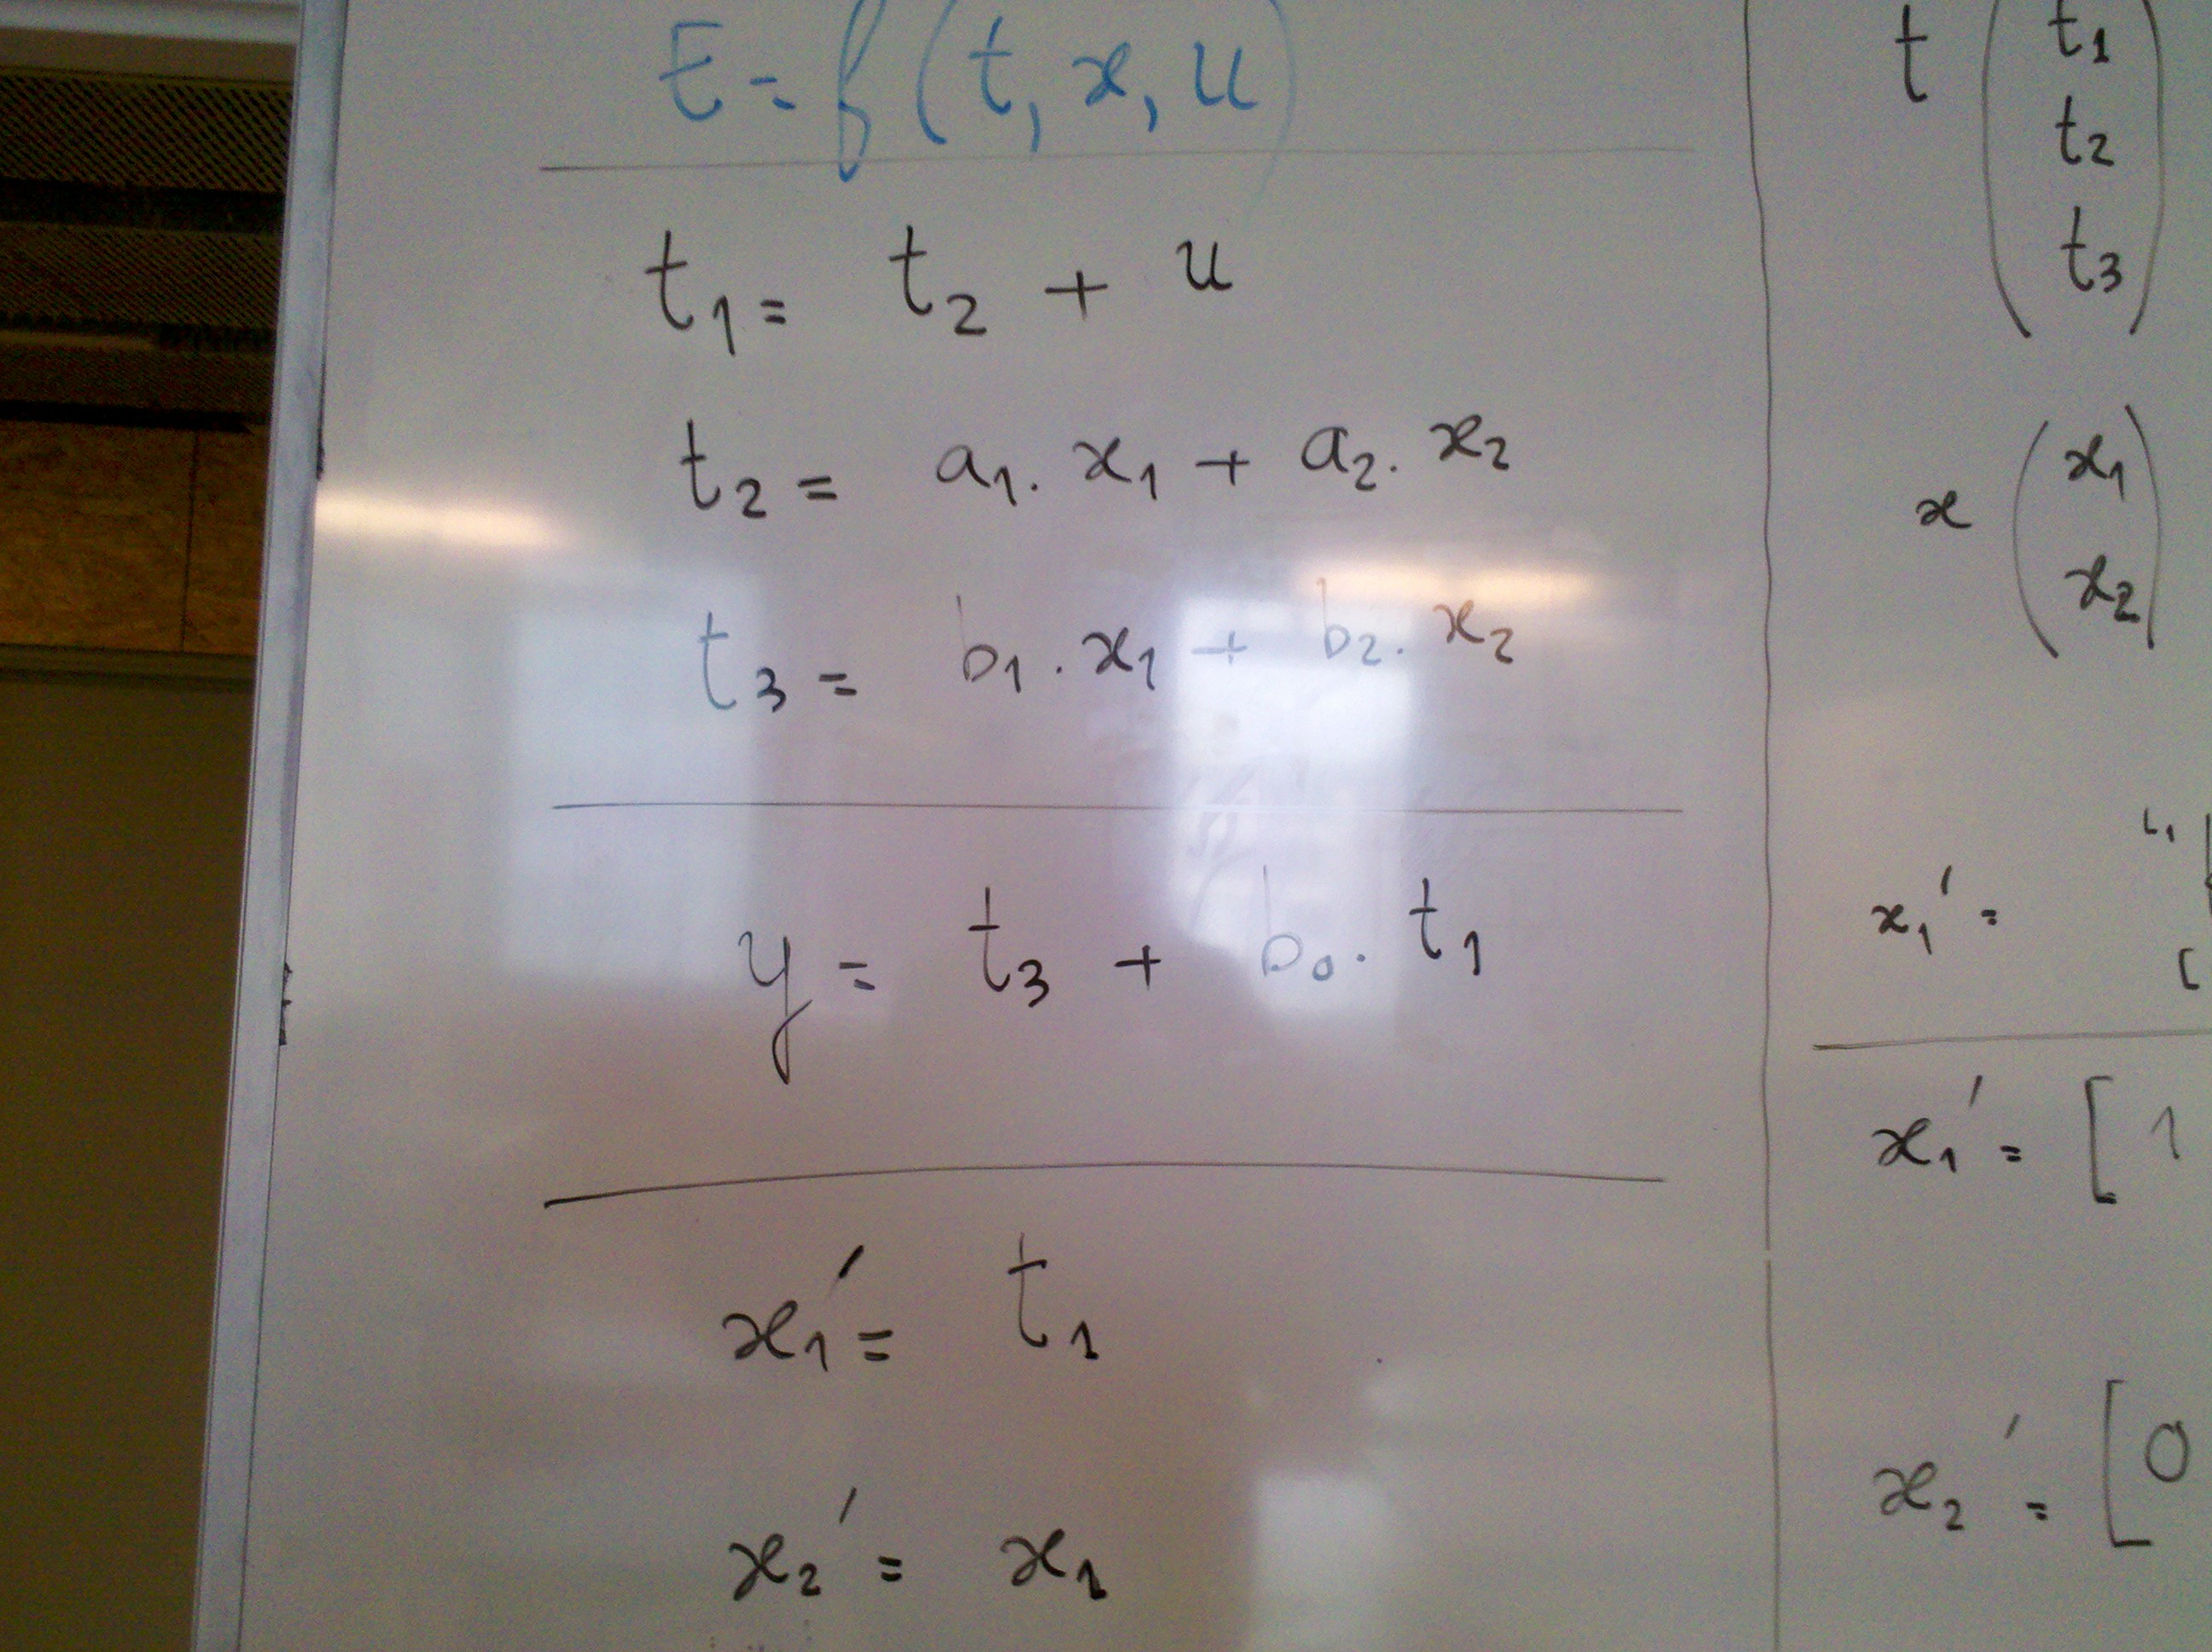 E = f(t, x, u)
t1 = t2 + u
t2 = a1. x1 + a2. x2
t3 = b1. x1 + b2. x2
y = t3 + b0. t1
x1' = t1
x2' = x1
t ( t1
t2
t3 )
x ( x1
x2 )
x1' =
x1' = [ 1
x2' = [ 0